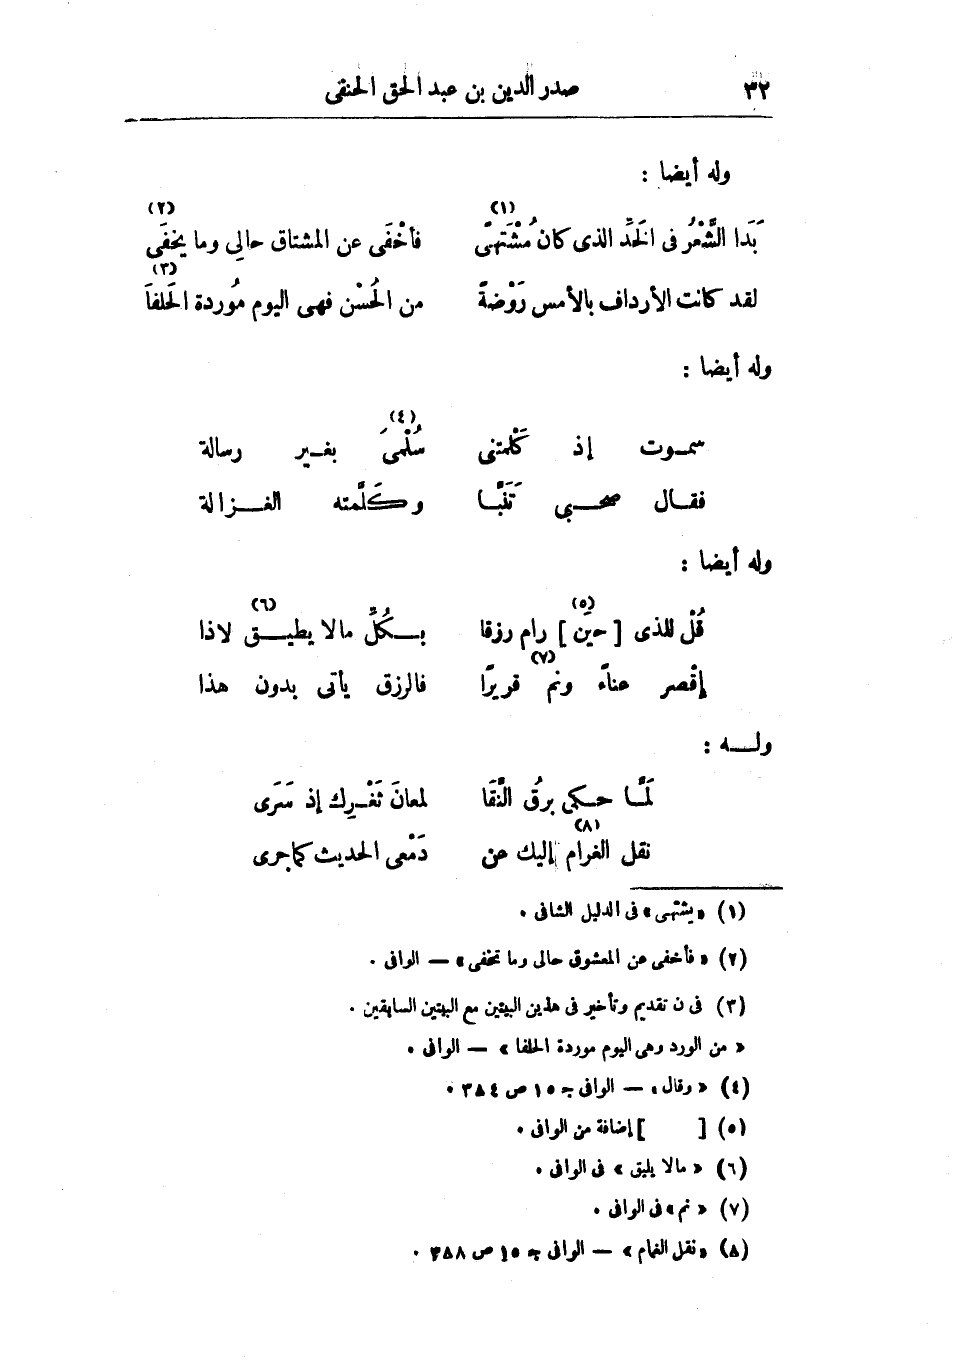 ٣٢ صدر الدين بن عبد الحق الحنفى
وله أيضا :
(١) (٢)
بَدَا الشَّعْرُ فى الخَدِّ الذى كان مُشْتَهًى فأخْفَى عن المشتاق حالِى وما يخفَى
(٣)
لقد كانت الأرداف بالأمس رَوْضةً من الحُسْن فهى اليوم مُوردة الحَلفاَ
وله أيضا :
(٤)
سمـوت إذ كَلَّمتنى سُلْمَىَ بغـير رسالة
فقـال صحـبى تَنَبَّـا وكَلَّمته الغـزالة
وله أيضا :
(٥) (٦)
قُلْ للذى [ حينَ ] رام رزقا بـكُلِّ مالا يطيـق لاذا
(٧)
إقْصر عناءً ونم قريرًا فالرزق يأتى بدون هذا
ولـه :
لَمَّـا حـكى برقُ النَّقَا لمعانَ ثَغْـرِك إذ سَرَى
(٨)
نقل الغرام إليك عن دَمْعى الحديث كماجرى
(١) «يشتهى» فى الدليل الشافى .
(٢) « فأخفى عن المعشوق حالى وما تخفى » — الوافى .
(٣) فى ن تقديم وتأخير فى هذين البيتين مع البيتين السابقين .
« من الورد وهى اليوم موردة الحلفا » — الوافى .
(٤) « وقال » — الوافى جـ ١٥ ص ٣٨٤ .
(٥) [ ] إضافة من الوافى .
(٦) « مالا يليق » فى الوافى .
(٧) « نم » فى الوافى .
(٨) «نقل الغمام » — الوافى جـ ١٥ ص ٣٨٨ .